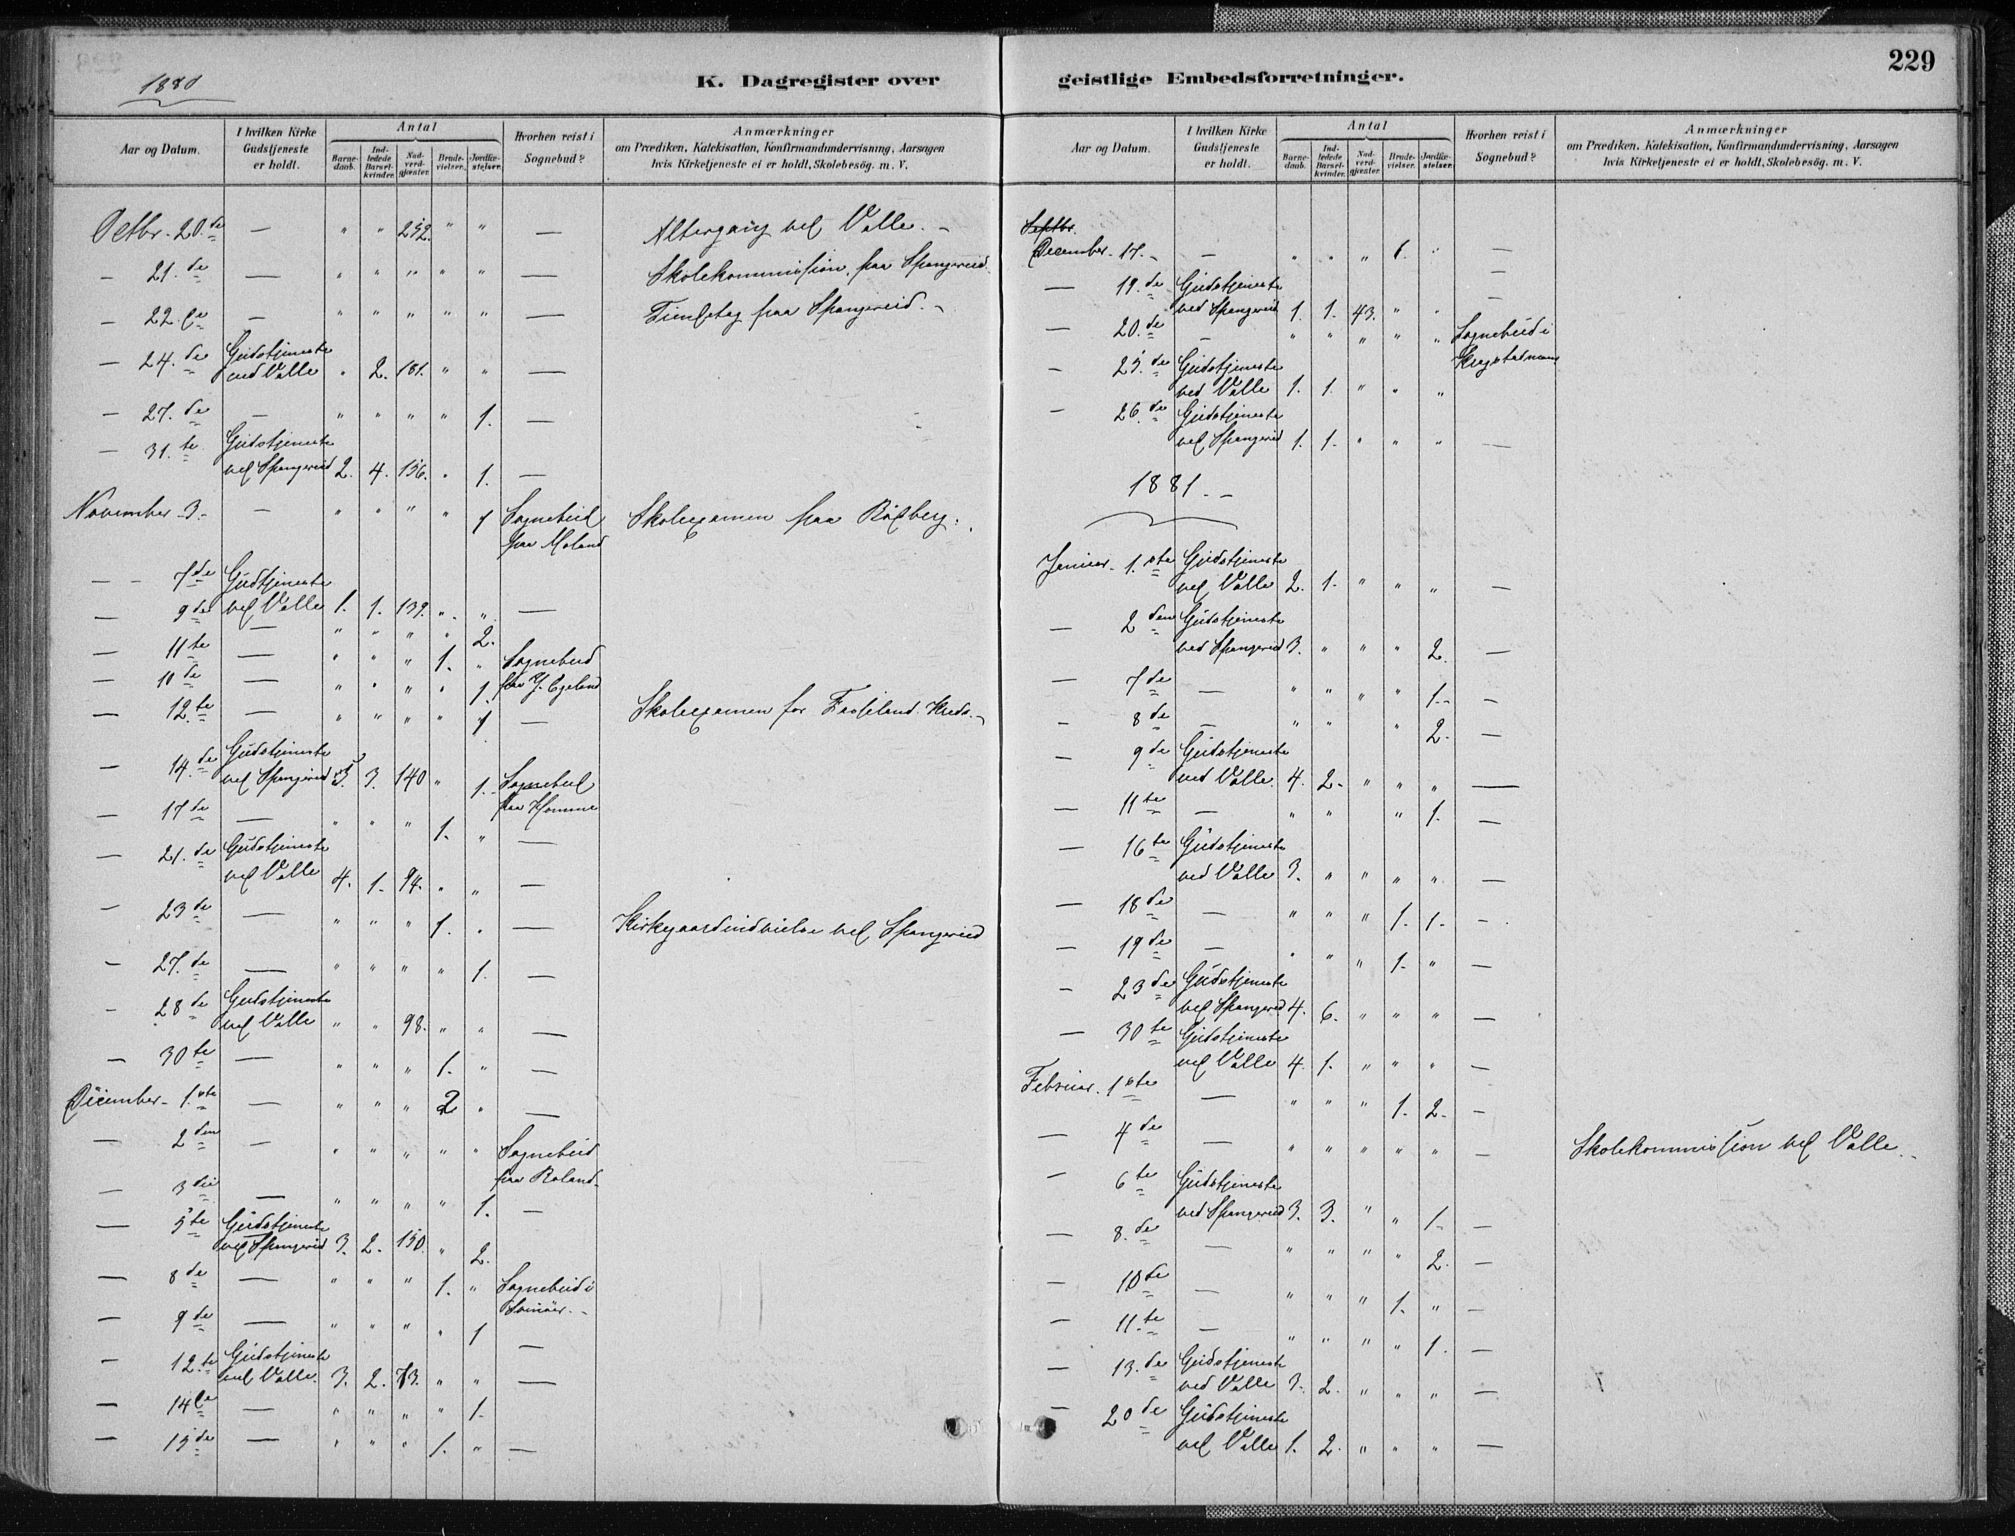 229
1880
K. Dagregister over geistlige Embedsforretninger.
Aar og Datum.
I hvilken Kirke Gudstjeneste er holdt.
Antal
Barnedaab.
Indledede Barselkvinder.
Nadverdgjæster.
Brudevielser.
Jordfæstelser.
Hvorhen reist i Sognebud?
Anmærkninger
om Prædiken, Katekisation, Konfirmandundervisning, Aarsagen
hvis Kirketjeneste ei er holdt, Skolebesög. m. V.
Octbr. 20.de — " " 232. " " — Altergang ved Valle. -
— 21.de — " " " " " — Skolekommission paa Spangereid.
— 22.de — " " " " " — Spangereid. -
— 24.de Gudstjeneste
ved Valle " 2. 181. " " —
— 27.de — " " " " 1. —
— 31.te Gudstjeneste
ved Spangereid 2. 4. 156. " 1. —
November 3. — " " " " 1 Sognebud Skoleexamen paa Rödberg.
paa Moland
— 7de Gudtjeneste
ved Valle 1. 1. 139. " " —
— 9de — " " " " 2.
— 11te — " " " 1. " Sognebud
— 10de — " " " " 1. paa Y. Egeland
— 12.te — " " " " 1 — Skoleexamen for Kreds. -
— 14.de Gudstjeneste
ved Spangereid 3. 3. 140 " 1. Sognebud
paa Homme
— 17de — " " " 1. " —
— 21.de Gudstjeneste
ved Valle 4. 1. 94. " " —
— 23de — " " " 1. " — Kirkegaardindvielse ved Spangereid
— 27.de — " " " " 1. —
— 28de Gudstjeneste
ved Valle " " 98. " " —
— 30te — " " " 1. " —
December 1.ste — " " " 2 " —
— 2den — " " " " " Sognebud
paa Roland.
— 3die — " " " " 1. —
— 5te Gudstjeneste
ved Spangereid 3. 2. 130. " 2.
— 8de — " " " 1. " Sognebud i
— 9de — " " " " 1 —
— 12.te Gudstjeneste
ved Valle. 3. 2. 73. " " —
— 14de — " " " " 1.
— 15de — " " " 1. " —
Aar og Datum.
I hvilken Kirke Gudstjeneste er holdt.
Antal
Barnedaab.
Indledede Barselkvinder.
Nadverdgjæster.
Brudevielser.
Jordfæstelser.
Hvorhen reist i Sognebud?
Anmærkninger
om Prædiken, Katekisation, Konfirmandundervisning, Aarsagen
hvis Kirketjeneste ei er holdt, Skolebesög. m. V.
Septbr.
December 17. — " " " 1. " —
— 19.de Gudstjeneste
ved Spangereid 1. 1. 43. " " —
— 20.de — " " " " " Sognebud i
— 25.de Gudstjeneste
ved Valle 1. 1. " " "
— 26.de Gudstjeneste
ved Spangereid 1. 1. " " " —
1881. -
Januar 1.ste Gudstjeneste
ved Valle 2. 1. " " " —
— 2den Gudstjeneste
ved Spangereid 3. " " " 2. —
— 7de — " " " " 1. —
— 8de — " " " 2. —
— 9de Gudstjeneste
ved Valle 4. 2. " " " —
— 11te — " " " " 1. —
— 16te Gudstjeneste
ved Valle 3. " " " " —
— 18de — " " " 1. 1. —
— 19de — " " " 1. " —
— 23de Gudstjeneste
ved Spangereid 4. 6. " " " —
— 30te Gudstjeneste
ved Valle 4. 1. " " " —
Februar. 1ste — " " " 1. 2. —
— 4de — " " " " " — Skolekommission ved Valle. -
— 6te Gudstjeneste
ved Spangereid 3. 3. " " 1. —
— 8.de — " " " " 2. —
— 10de — " " " 1. " —
— 11.te — " " " " 1. —
— 13.de Gudstjeneste
ved Valle 3. 2. " " " —
— 20de Gudstjeneste
ved Valle 1. 2. " " " —